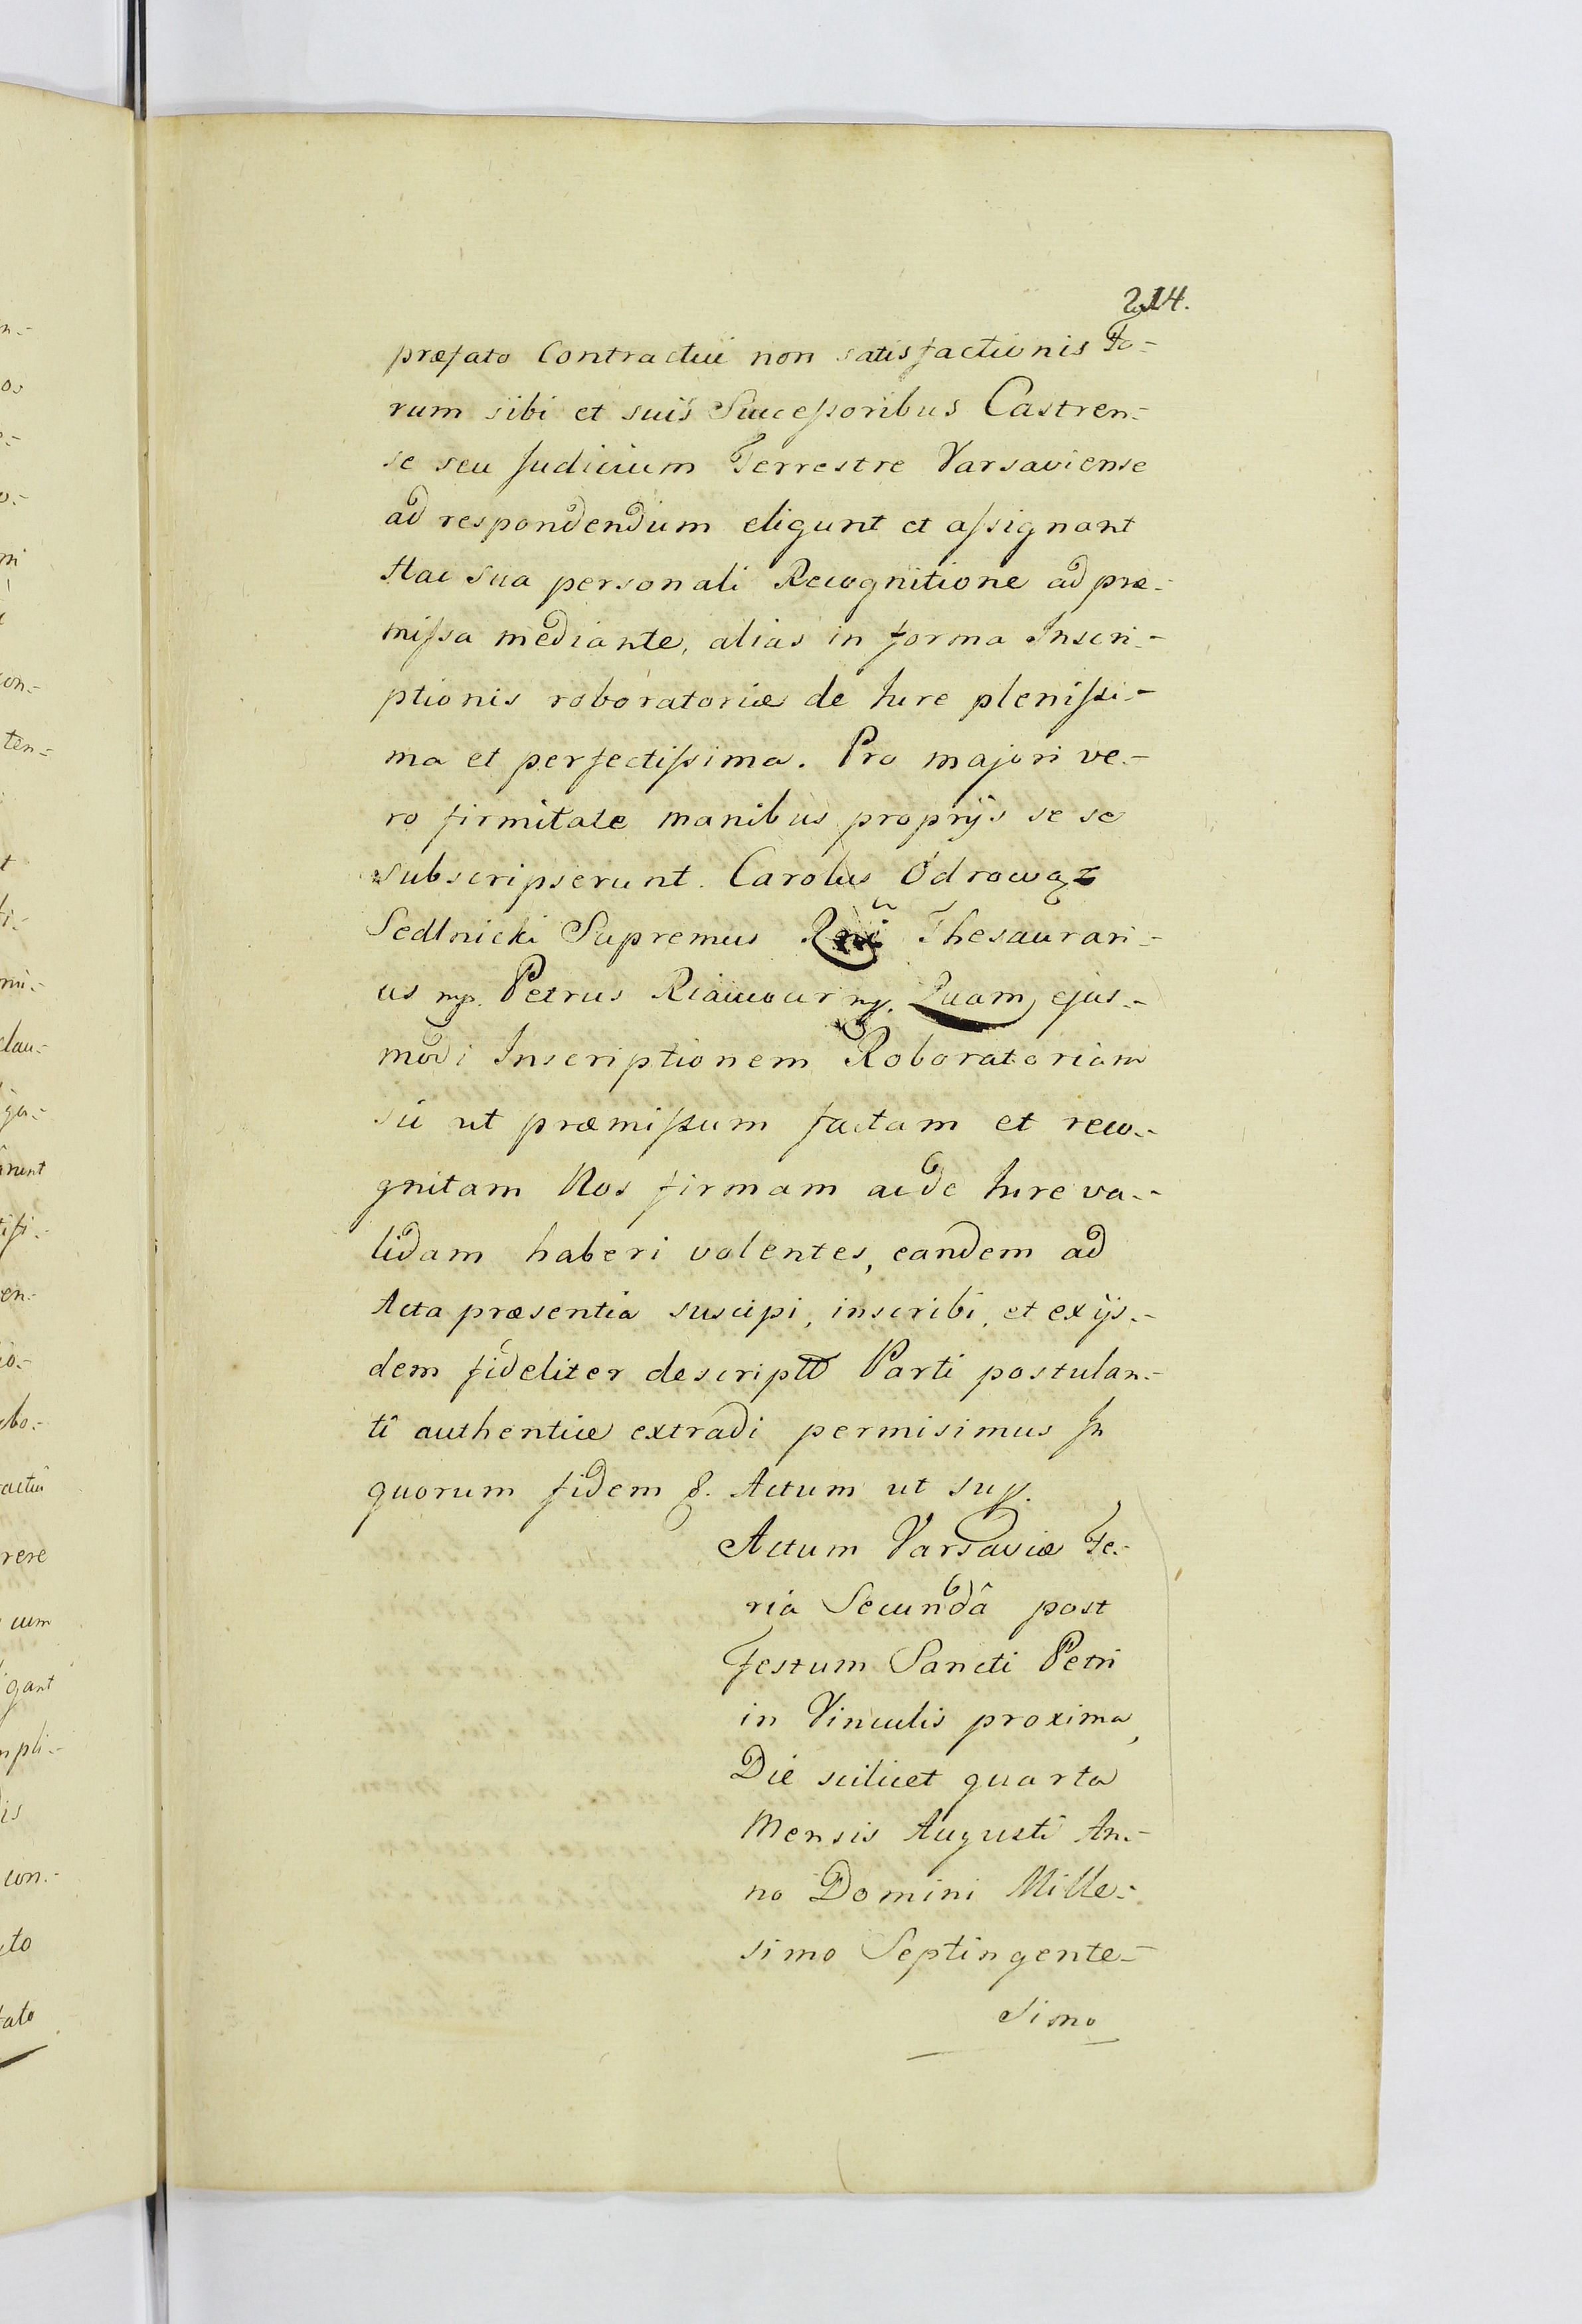 214.
præfato Contractui non satisfactionis Fo-
rum sibi et suis Successoribus Castren-
se seu Judicium Terrestre Varsaviense
ad respondendum eligunt et assignant
Hac sua personali Recognitione ad præ-
missa mediante, alias in forma Inscri-
ptionis roboratoriæ de Jure plenissi-
ma et perfectissima. Pro majori ve-
ro firmitate manibus proprijs se se
subscripserunt. Carolus Odrowąz
Sedlnicki Supremus Rni Thesaurari-
us mp. Petrus Riaucour mp. Quam ejus-
modi Inscriptionem Roboratoriam
sic ut præmissum factam et reco-
gnitam Nos firmam ac de Jure va-
lidam haberi volentes, eandem ad
Acta præsentia suscipi, inscribi, et ex ijs-
dem fideliter descriptã Parti postulan-
ti authentice extradi permisimus In
quorum fidem &. Actum ut sup.
Actum Varsaviæ Fe-
ria Secundâ post
Festum Sancti Petri
in Vinculis proxima,
Die scilicet quarta
Mensis Augusti An-
no Domini Mille-
simo Septingente-
simo